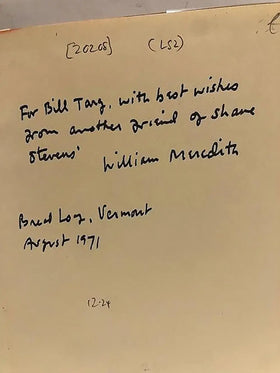 [20205] (LS2)
For Bill Targ, with best wishes
from another friend of Shane
Stevens' William Meredith
Bread Loaf, Vermont
August 1971
12.24